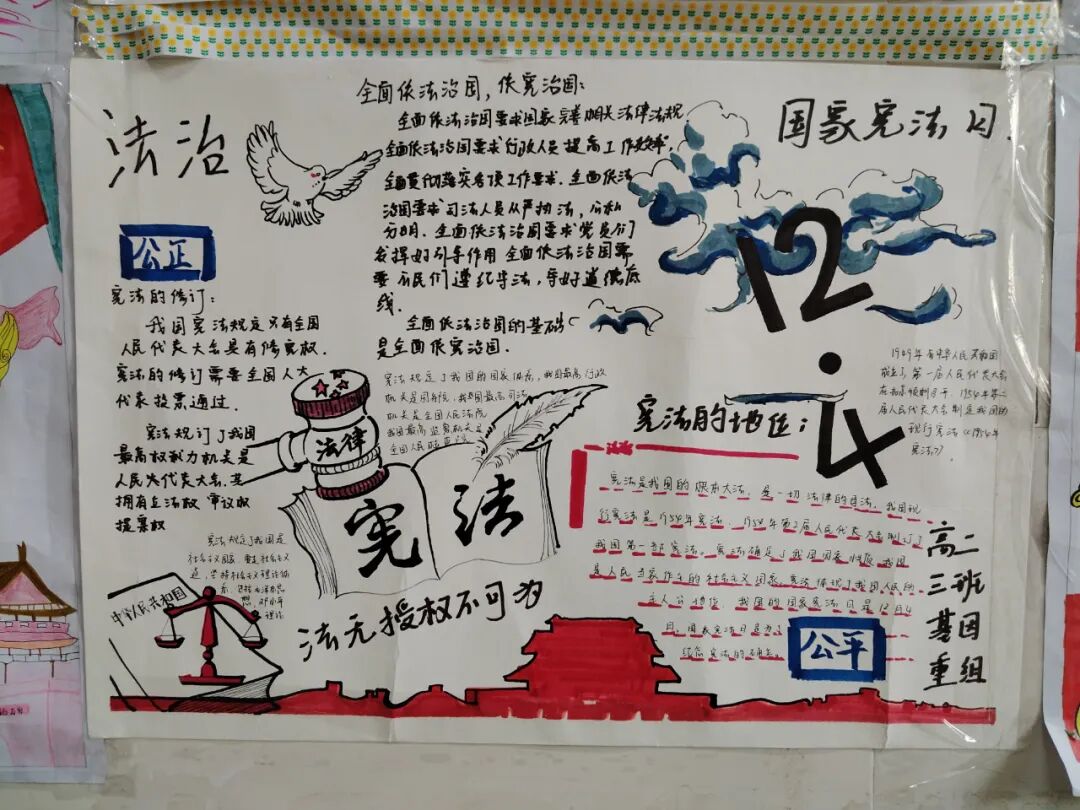 法治
公正
宪法的修订：
我国宪法规定只有全国
人民代表大会具有修宪权.
宪法的修订需要全国人大
代表投票通过.
宪法规订了我国
最高权利力机关是
人民大代表大会，其
拥有立法权 审议权
提案权
宪法规定了我国是
社会主义国家
中华人民共和国
全面依法治国，依宪治国：
全面依法治国要求国家完善相关法律法规
全面依法治国要求行政人员提高工作效率，
全面贯彻落实各项工作要求. 全面依法
治国要求司法人员从严执法，公私
分明. 全面依法治国要求党员们
发挥好引导作用 全面依法治国需
要人民们遵纪守法，守好道德底
线.
全面依法治国的基础
是全面依宪治国.
宪法规定了我国的国家体系，我国最高行政
机关是国务院，我国最高司法
机关是全国人民法院
我国最高监察机关是
法律
宪法
法无授权不可为
国家宪法日.
12·4
1949年
宪法的地位：
法治
宪法是我国的根本大法，是一切法律的母法，我国现
行宪法是1954年宪法. 1954年第2届人民代表大会制订了
我国第一部宪法. 宪法确定了我国国家性质 我国
是人民当家作主的社会主义国家 宪法体现了我国人民的
主人公地位. 我国的国家宪法日是12月4
日. 国家宪法日是为了
公平
高二
三班
基因
重组